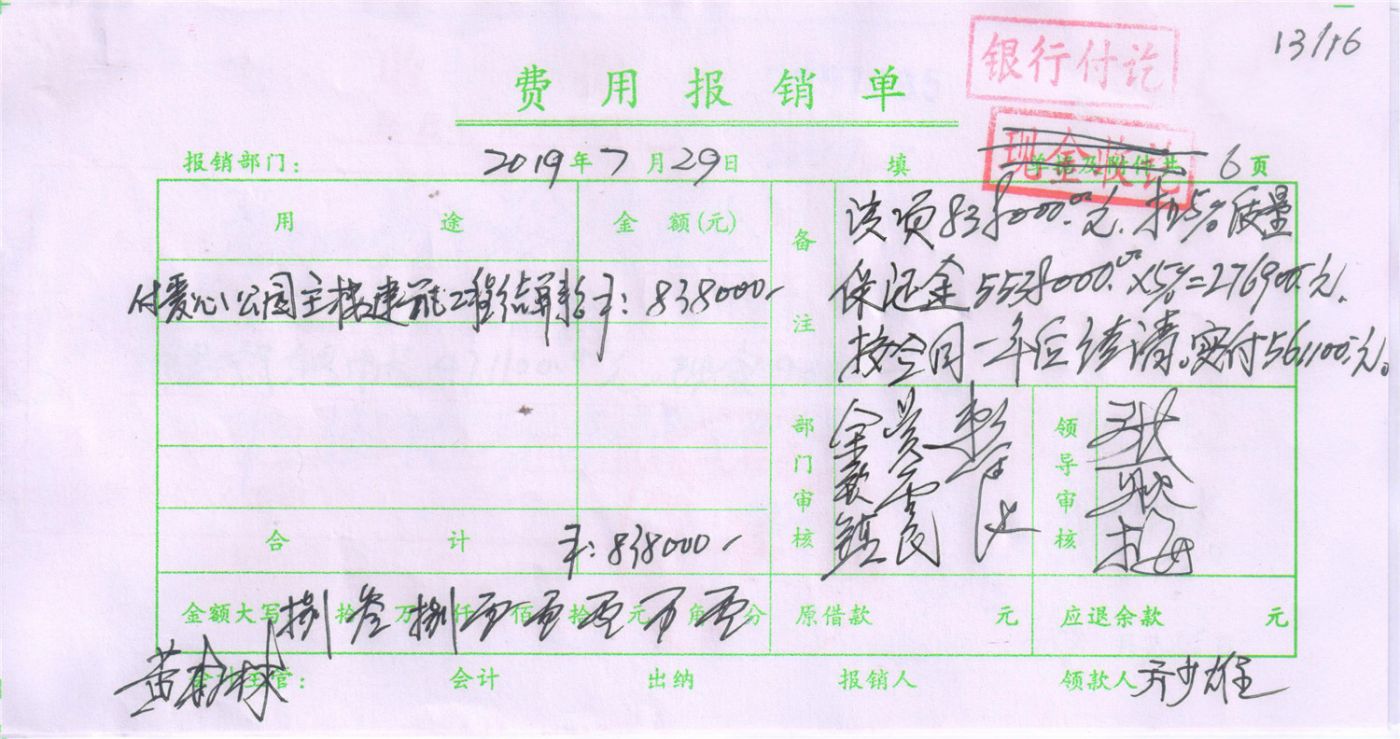 13/16
银行付讫
费用报销单
现金收讫
报销部门： 2019年7月29日 填 单据及附件共 6页
用途 金额(元) 备注
付爱心公园主楼建筑工程结算款 ¥:838000-
该项838000.00元.扣5%质量
保证金5538000.00×5%=276900.元.
按合同一年后结清。实付561100.元。
部门审核
领导审核
合计 ¥:838000-
金额大写 捌拾叁万捌仟零佰零拾零元零角零分 原借款 元 应退余款 元
会计主管： 会计 出纳 报销人 领款人